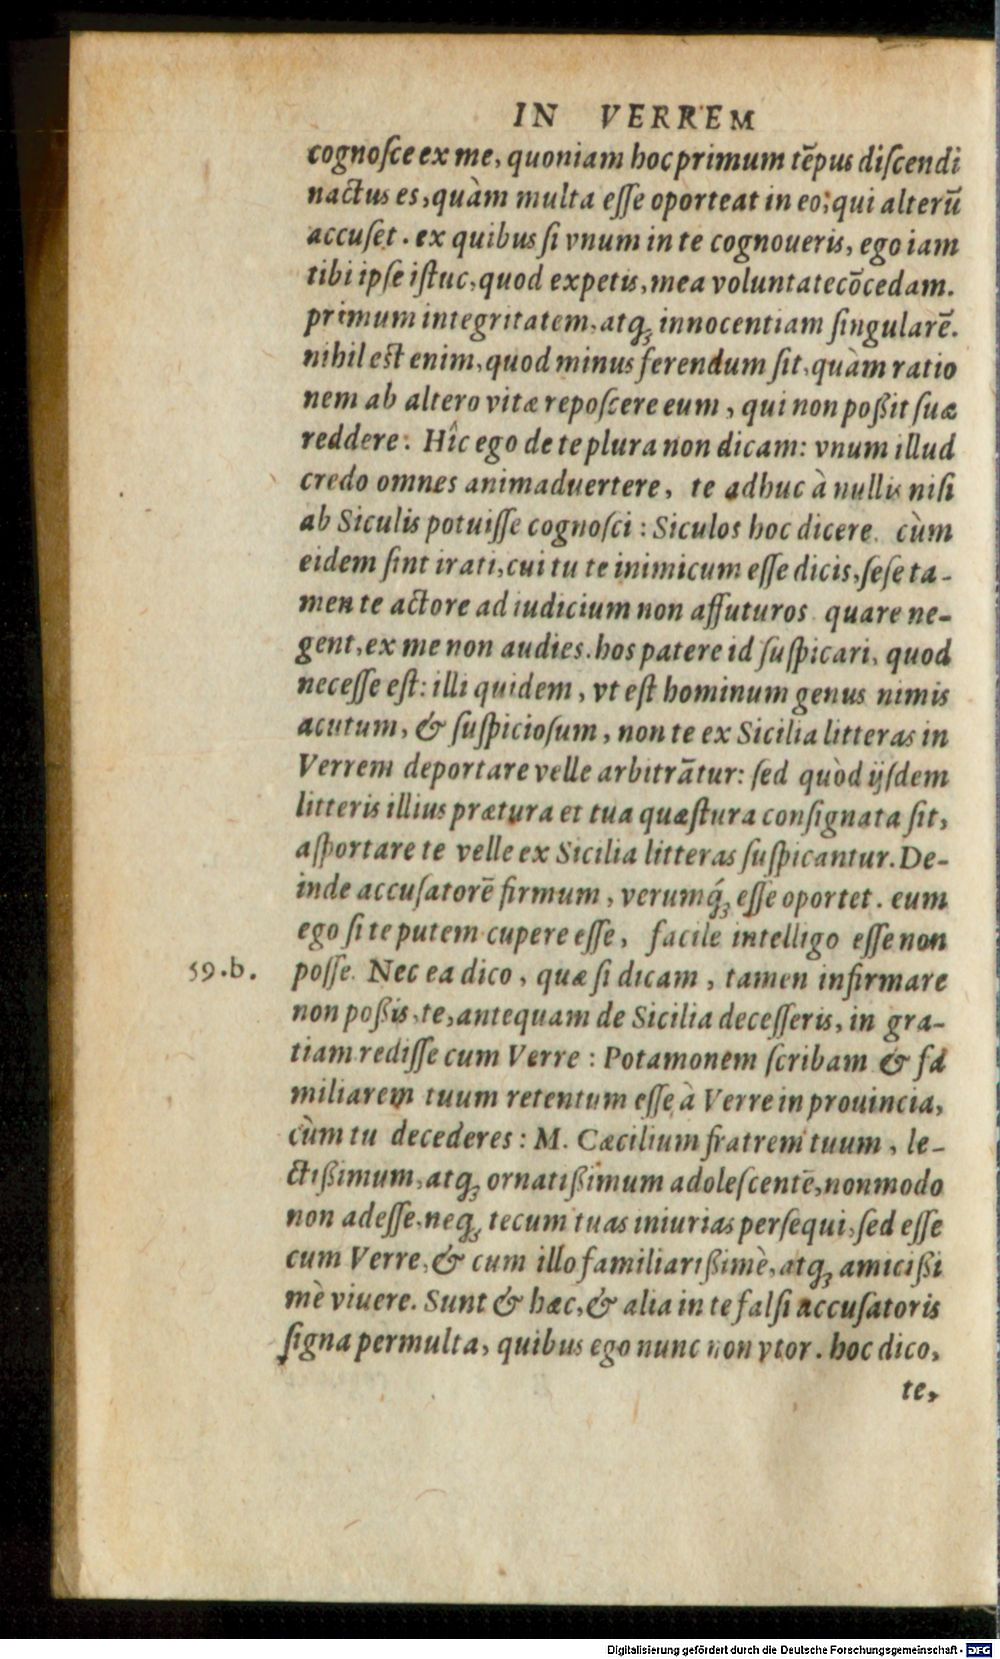 IN VERREM
cognoſce ex me, quoniam hoc primum tẽpus diſcendi
nactus es, quàm multa eſſe oporteat in eo, qui alterũ
accuſet. ex quibus ſi vnum in te cognoueris, ego iam
tibi ipſe iſtuc, quod expetis, mea voluntate cõcedam.
primum integritatem, atq; innocentiam ſingularẽ.
nihil eſt enim, quod minus ferendum ſit, quàm ratio
nem ab altero vitæ repoſcere eum, qui non poßit ſuæ
reddere. Hîc ego de te plura non dicam: vnum illud
credo omnes animaduertere, te adhuc à nullis niſi
ab Siculis potuiſſe cognoſci: Siculos hoc dicere. cùm
eidem ſint irati, cui tu te inimicum eſſe dicis, ſeſe ta-
men te actore ad iudicium non affuturos. quare ne-
gent, ex me non audies. hos patere id ſuſpicari, quod
neceſſe eſt: illi quidem, vt eſt hominum genus nimis
acutum, & ſuſpicioſum, non te ex Sicilia litteras in
Verrem deportare velle arbitrãtur: ſed quòd ijſdem
litteris illius prætura et tua quæſtura conſignata ſit,
aſportare te velle ex Sicilia litteras ſuſpicantur. De-
inde accuſatorẽ firmum, verumq́; eſſe oportet. eum
ego ſi te putem cupere eſſe, facile intelligo eſſe non
59.b. poſſe. Nec ea dico, quæ ſi dicam, tamen infirmare
non poßis, te, antequam de Sicilia deceſſeris, in gra-
tiam rediſſe cum Verre: Potamonem ſcribam & fa
miliarem tuum retentum eſſe à Verre in prouincia,
cùm tu decederes: M. Cæcilium fratrem tuum, le-
ctißimum, atq; ornatißimum adoleſcentẽ, nonmodo
non adeſſe, neq; tecum tuas iniurias perſequi, ſed eſſe
cum Verre, & cum illo familiarißimè, atq; amicißi
mè viuere. Sunt & hæc, & alia in te falſi accuſatoris
ſigna permulta, quibus ego nunc non vtor. hoc dico,
te,
Digitalisierung gefördert durch die Deutsche Forschungsgemeinschaft - DFG